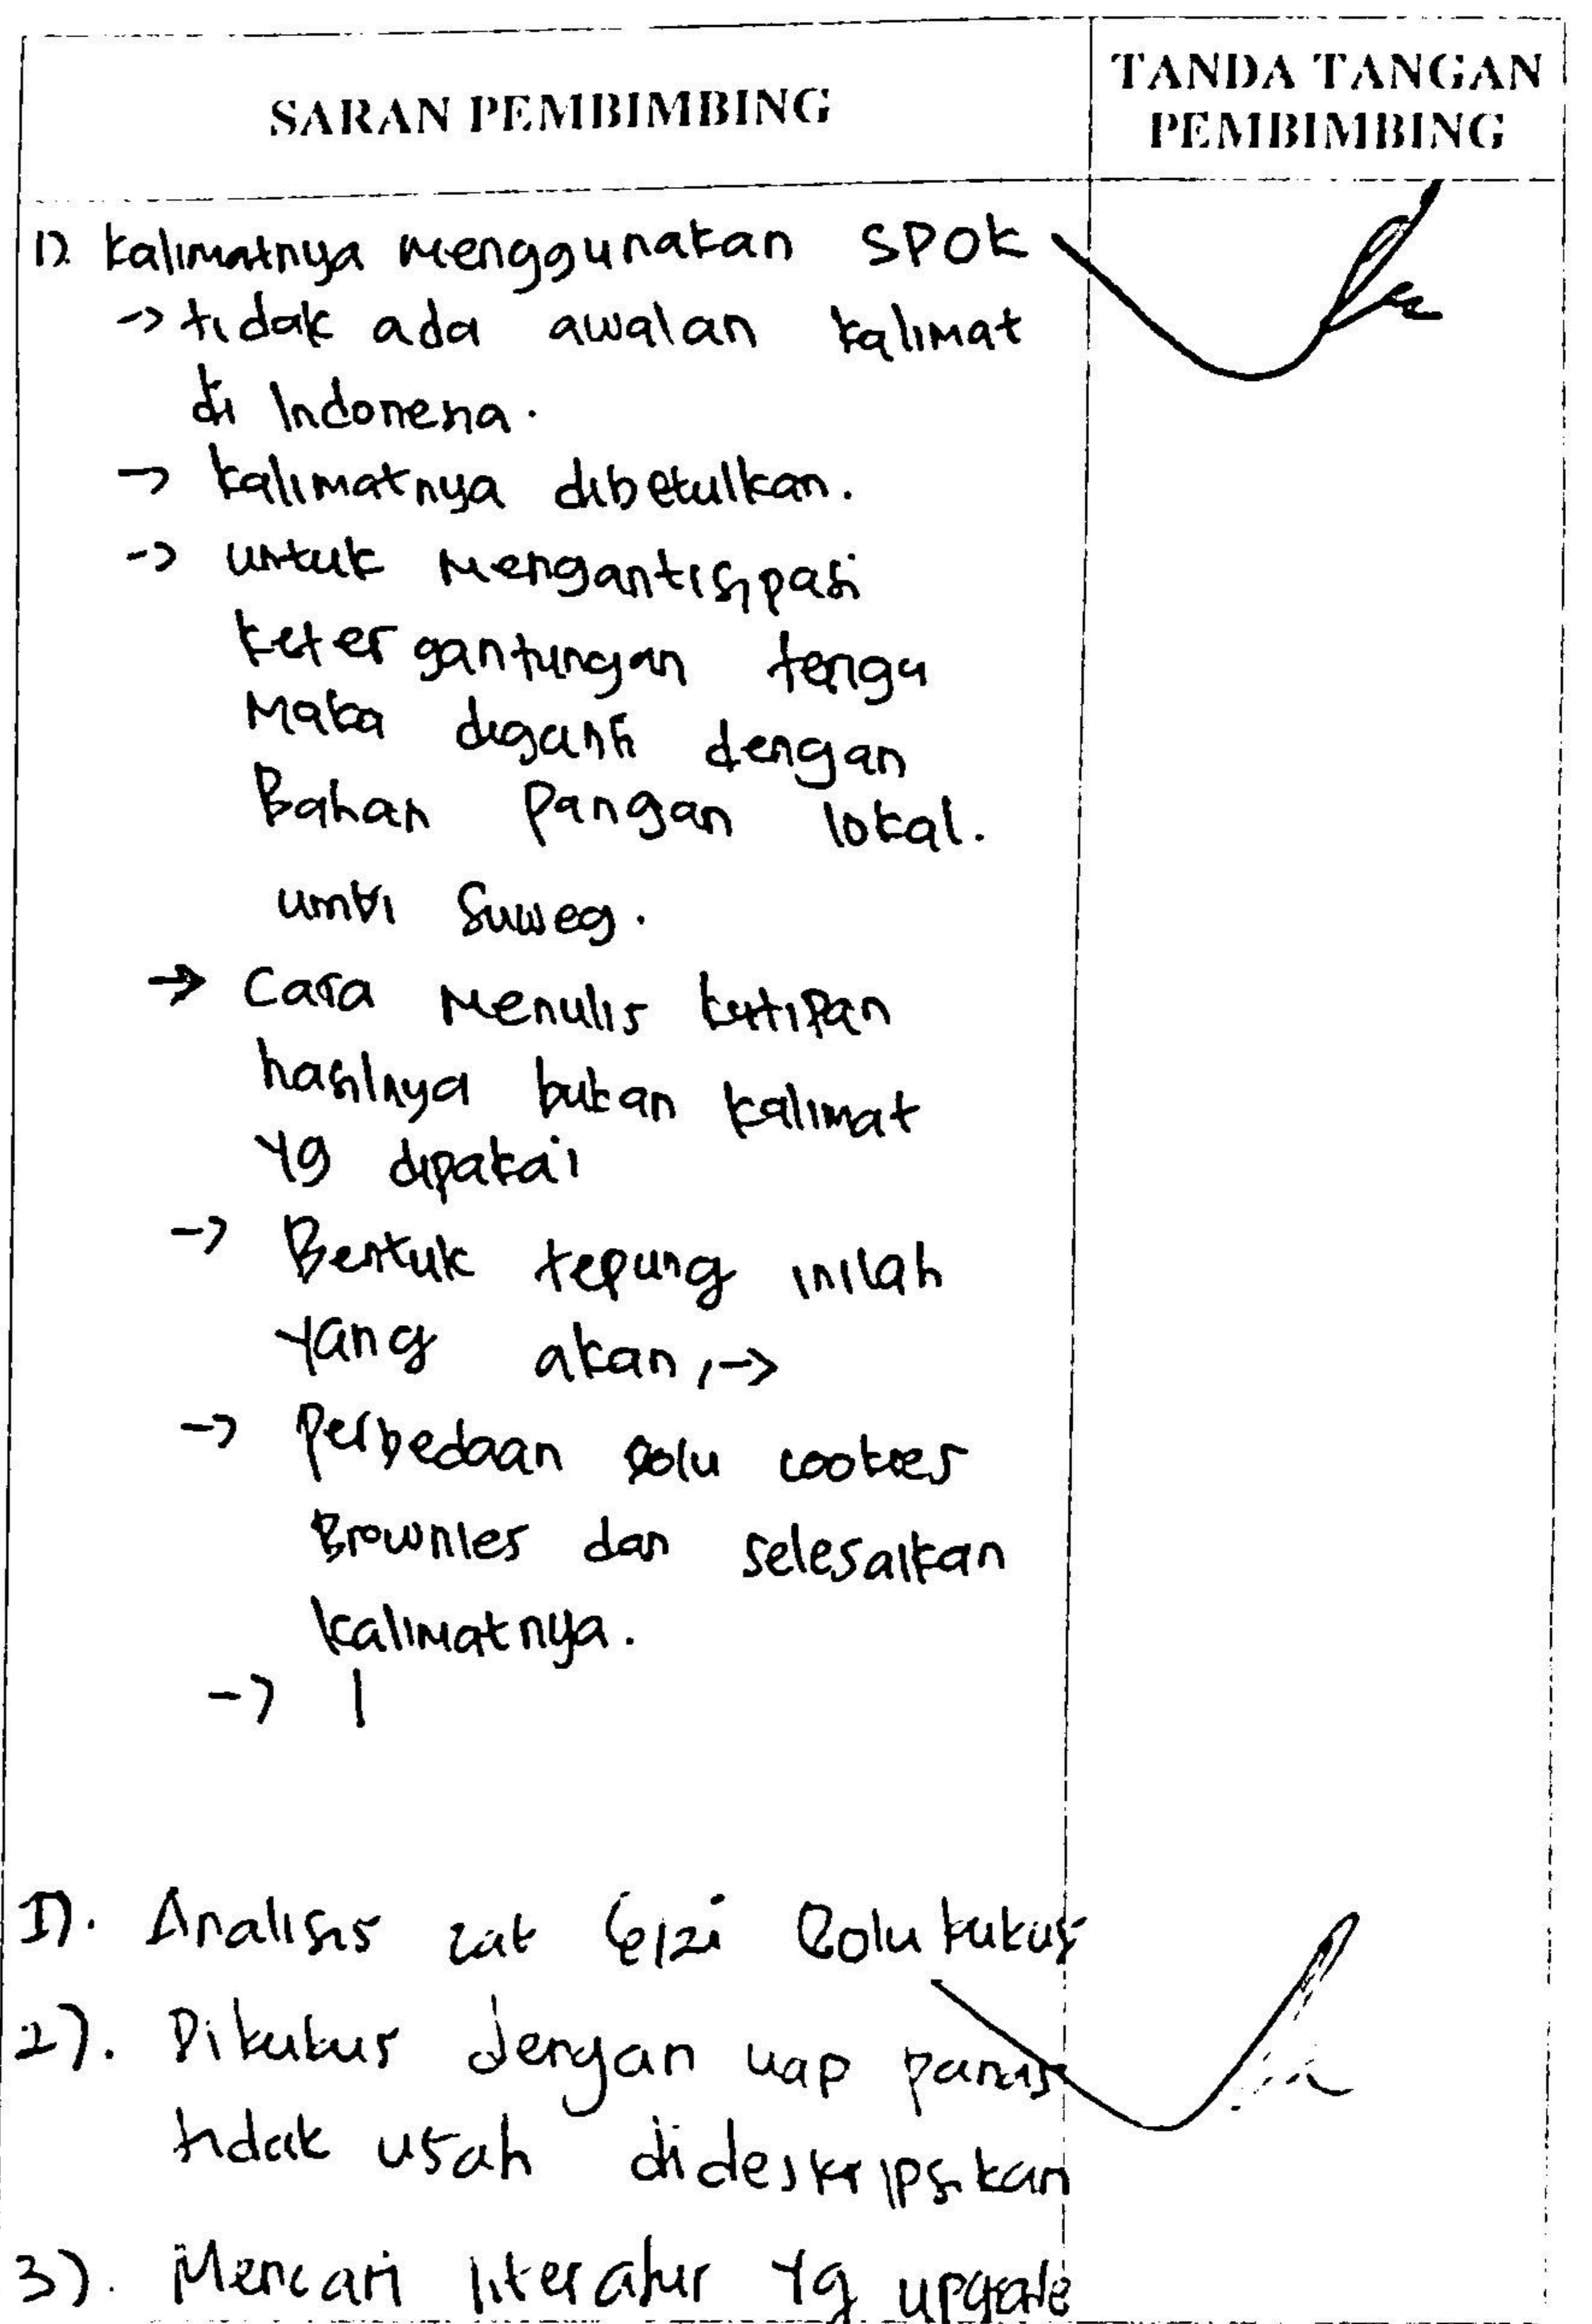 SARAN PEMBIMBING
TANDA TANGAN
PEMBIMBING
1) kalimatnya menggunakan SPOK
-> tidak ada awalan kalimat
di Indonesia.
-> kalimatnya dibetulkan.
-> untuk mengantisipasi
ketergantungan
Maka diganti dengan
Bahan Pangan lokal.
umbi Suweg.
-> Cara Menulis kutipan
hasilnya bukan kalimat
yg dipakai
-> Bentuk tepung inilah
yang akan, ->
-> Perbedaan Bolu cookies
Brownies dan selesaikan
kalimatnya.
-> |
1). Analisis zat Gizi Bolu kukus
2). Dikukus dengan uap panas
tidak usah dideskripsikan
3). Mencari literatur yg